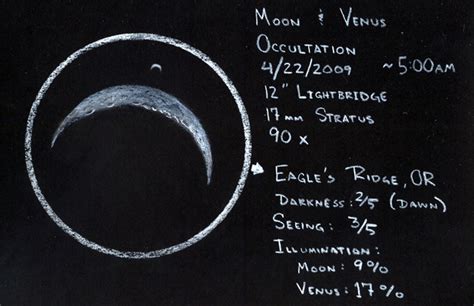 Moon & Venus
Occultation
4/22/2009 ~5:00AM
12" Lightbridge
17mm Stratus
90x
Eagle's Ridge, OR
Darkness: 2/5 (Dawn)
Seeing: 3/5
Illumination:
Moon: 9%
Venus: 17%